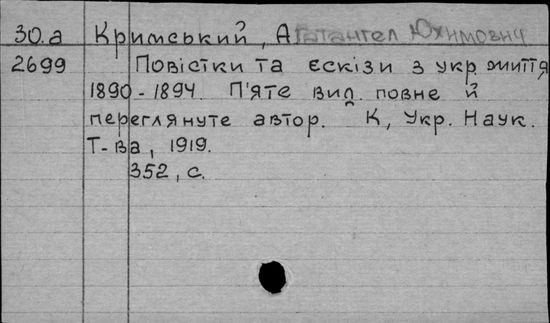 30.а Кримський, Агатангел Юхимович
2699 Повістки та ескізи з укр. життя
1890-1894. П'яте вид. повне й
переглянуте автор. К, Укр. Наук.
Т-ва, 1919.
352, с.